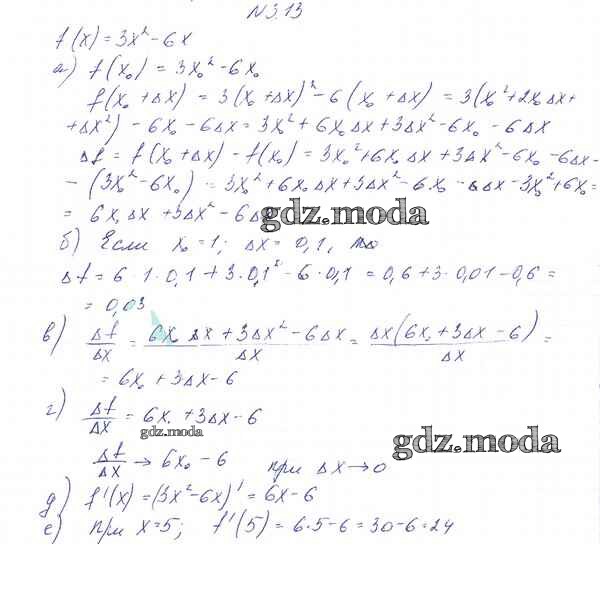 N3.13
f(x) = 3x² - 6x
а) f(x₀) = 3x₀² - 6x₀
f(x₀ + Δx) = 3(x₀ + Δx)² - 6(x₀ + Δx) = 3(x₀² + 2x₀Δx +
+ Δx²) - 6x₀ - 6Δx = 3x₀² + 6x₀Δx + 3Δx² - 6x₀ - 6Δx
Δf = f(x₀ + Δx) - f(x₀) = 3x₀² + 6x₀Δx + 3Δx² - 6x₀ - 6Δx -
- (3x₀² - 6x₀) = 3x₀² + 6x₀Δx + 3Δx² - 6x₀ - 6Δx - 3x₀² + 6x₀ =
= 6x₀Δx + 3Δx² - 6Δx
gdz.moda
б) Если x₀ = 1; Δx = 0,1, то
Δf = 6 · 1 · 0,1 + 3 · 0,1² - 6 · 0,1 = 0,6 + 3 · 0,01 - 0,6 =
= 0,03
в) Δf/Δx = (6x₀Δx + 3Δx² - 6Δx)/Δx = Δx(6x₀ + 3Δx - 6)/Δx =
= 6x₀ + 3Δx - 6
г) Δf/Δx = 6x₀ + 3Δx - 6
gdz.moda
gdz.moda
Δf/Δx → 6x₀ - 6 при Δx → 0
д) f'(x) = (3x² - 6x)' = 6x - 6
е) при x = 5; f'(5) = 6 · 5 - 6 = 30 - 6 = 24